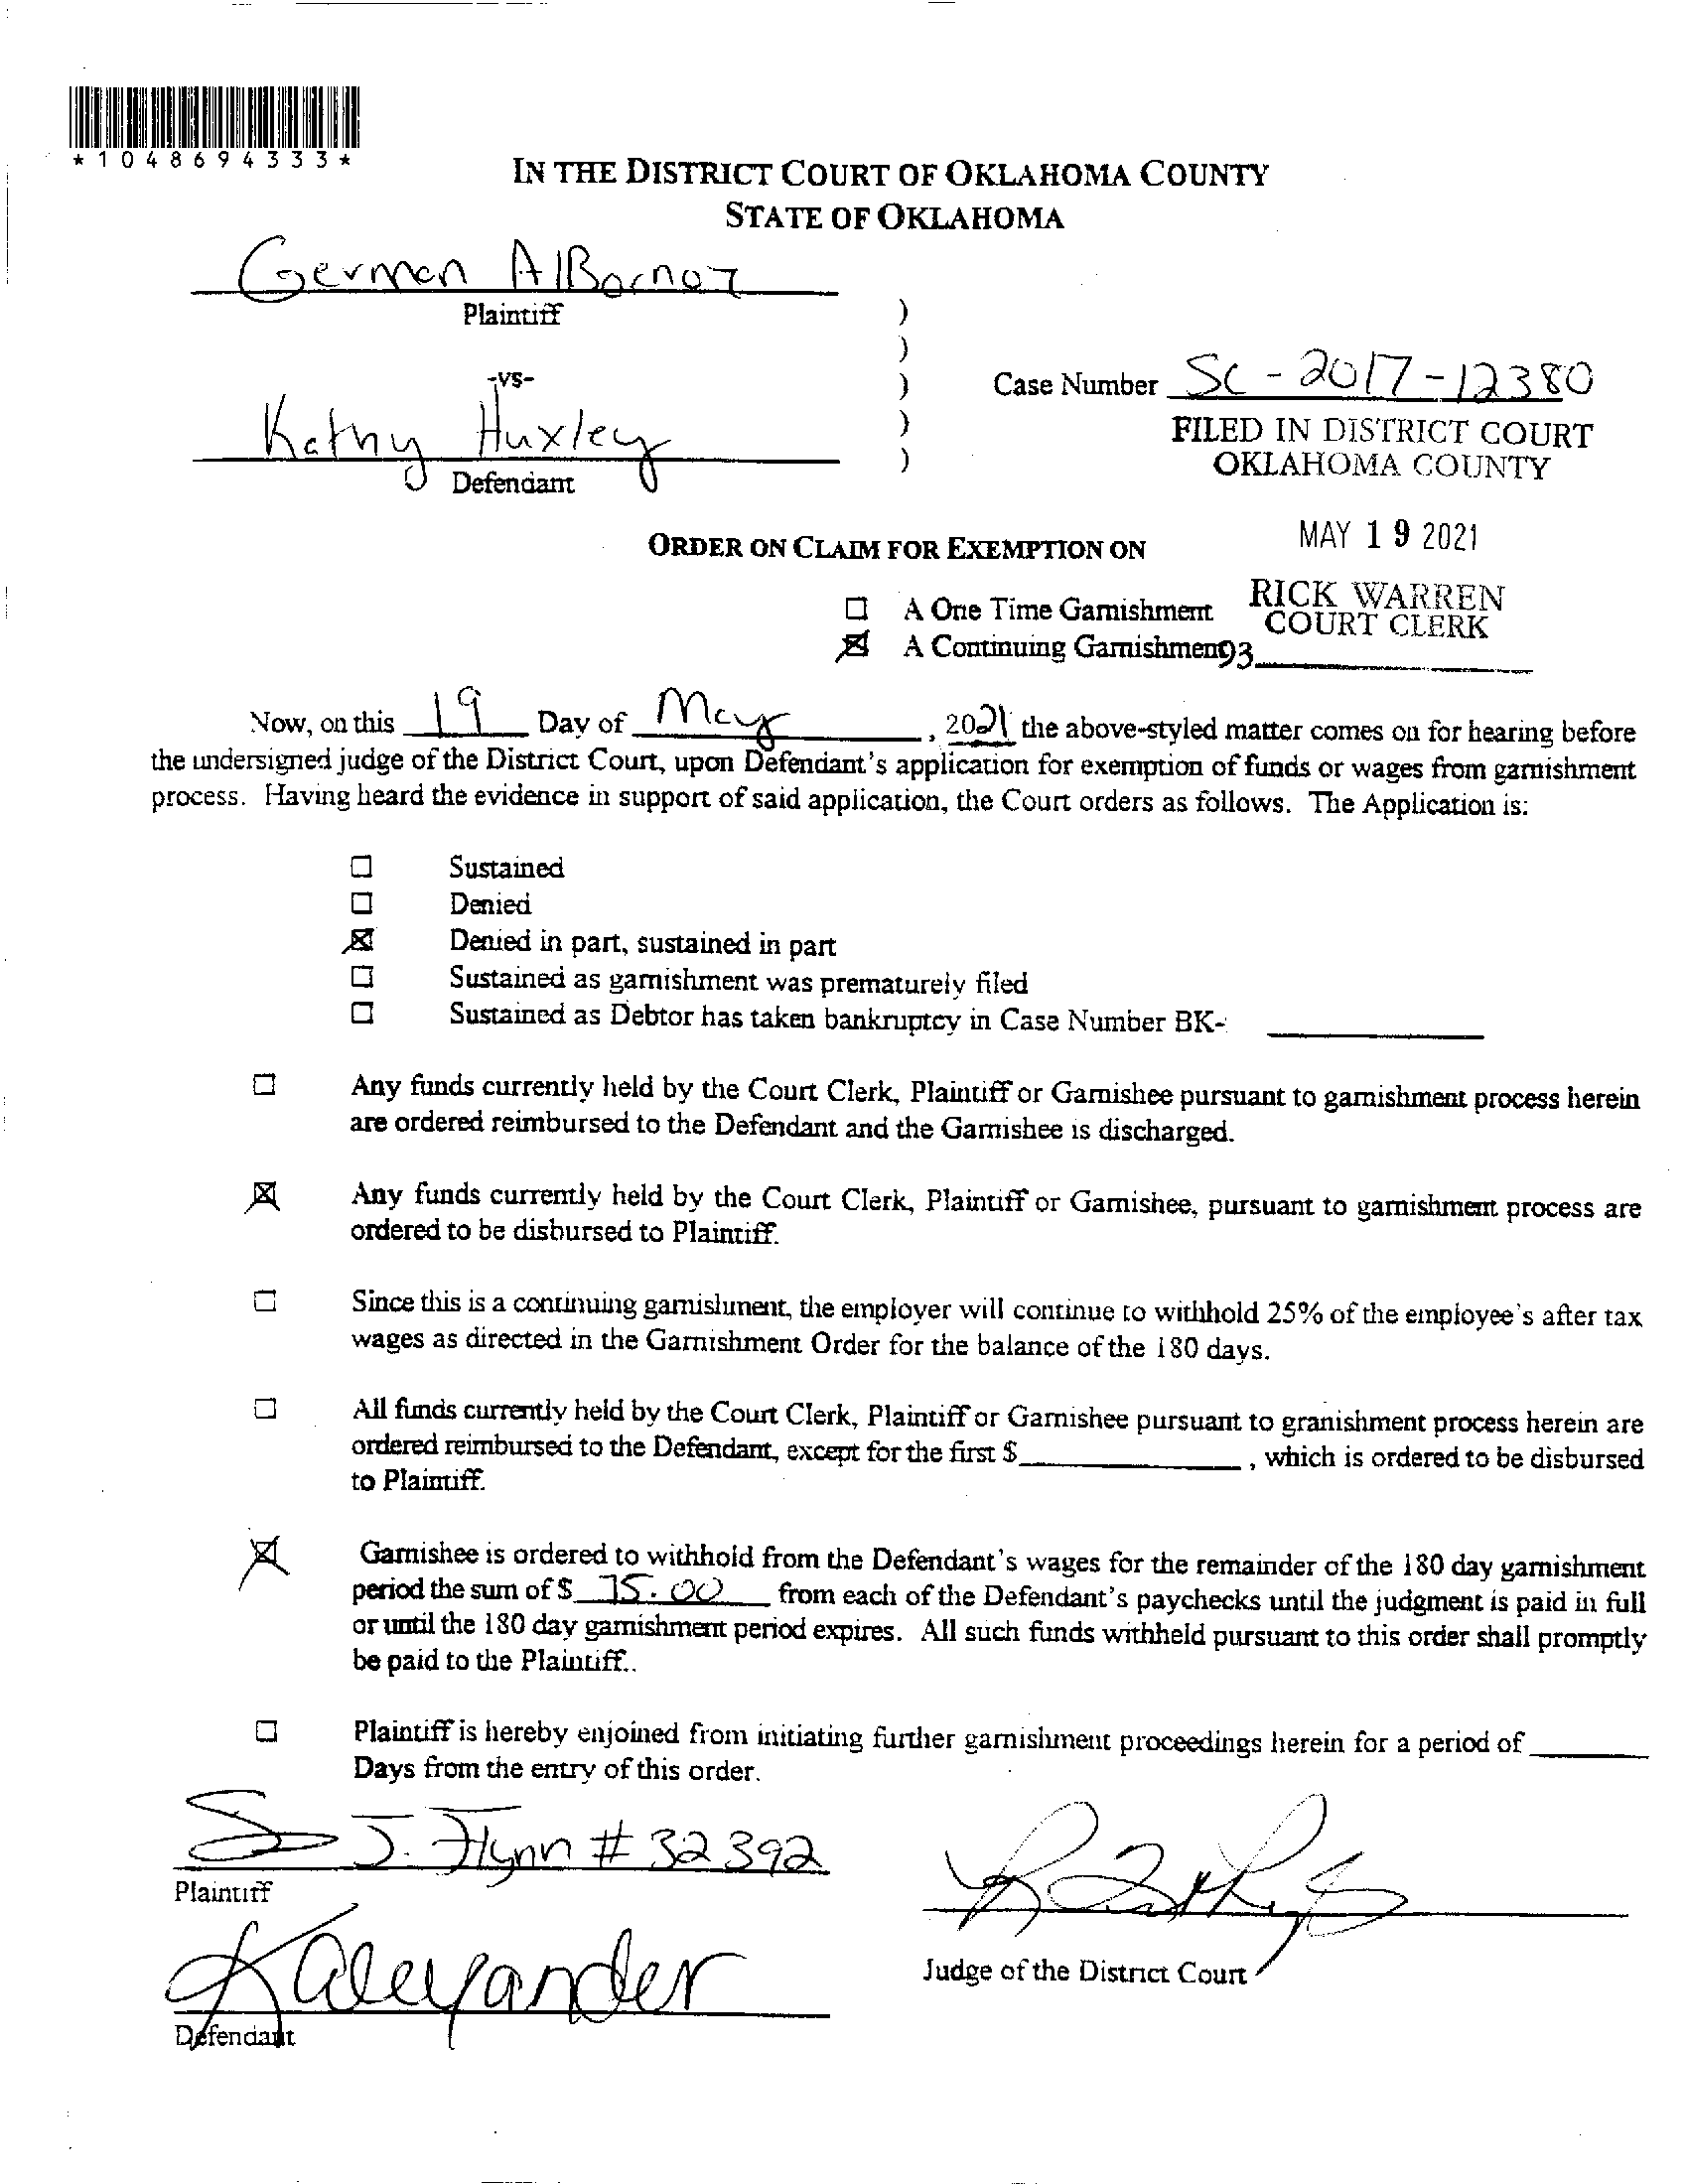 *1048694333*
IN THE DISTRICT COURT OF OKLAHOMA COUNTY
STATE OF OKLAHOMA
German AlBornoz
Plaintiff
)
)
-vs-
)
Case Number SC-2017-12380
Kathy Huxley
)
FILED IN DISTRICT COURT
)
OKLAHOMA COUNTY
Defendant
MAY 19 2021
ORDER ON CLAIM FOR EXEMPTION ON
RICK WARREN
☐ A One Time Garnishment
COURT CLERK
☒ A Continuing Garnishmen93
Now, on this 19 Day of May, 2021 the above-styled matter comes on for hearing before
the undersigned judge of the District Court, upon Defendant's application for exemption of funds or wages from garnishment
process. Having heard the evidence in support of said application, the Court orders as follows. The Application is:
☐ Sustained
☐ Denied
☒ Denied in part, sustained in part
☐ Sustained as garnishment was prematurely filed
☐ Sustained as Debtor has taken bankruptcy in Case Number BK-
☐ Any funds currently held by the Court Clerk, Plaintiff or Garnishee pursuant to garnishment process herein
are ordered reimbursed to the Defendant and the Garnishee is discharged.
☒ Any funds currently held by the Court Clerk, Plaintiff or Garnishee, pursuant to garnishment process are
ordered to be disbursed to Plaintiff.
☐ Since this is a continuing garnishment, the employer will continue to withhold 25% of the employee's after tax
wages as directed in the Garnishment Order for the balance of the 180 days.
☐ All funds currently held by the Court Clerk, Plaintiff or Garnishee pursuant to granishment process herein are
ordered reimbursed to the Defendant, except for the first $ , which is ordered to be disbursed
to Plaintiff.
☒ Garnishee is ordered to withhold from the Defendant's wages for the remainder of the 180 day garnishment
period the sum of $ 75.00 from each of the Defendant's paychecks until the judgment is paid in full
or until the 180 day garnishment period expires. All such funds withheld pursuant to this order shall promptly
be paid to the Plaintiff..
☐ Plaintiff is hereby enjoined from initiating further garnishment proceedings herein for a period of
Days from the entry of this order.
J. Flynn #32392
Plaintiff
K Alexander
Judge of the District Court
Defendant